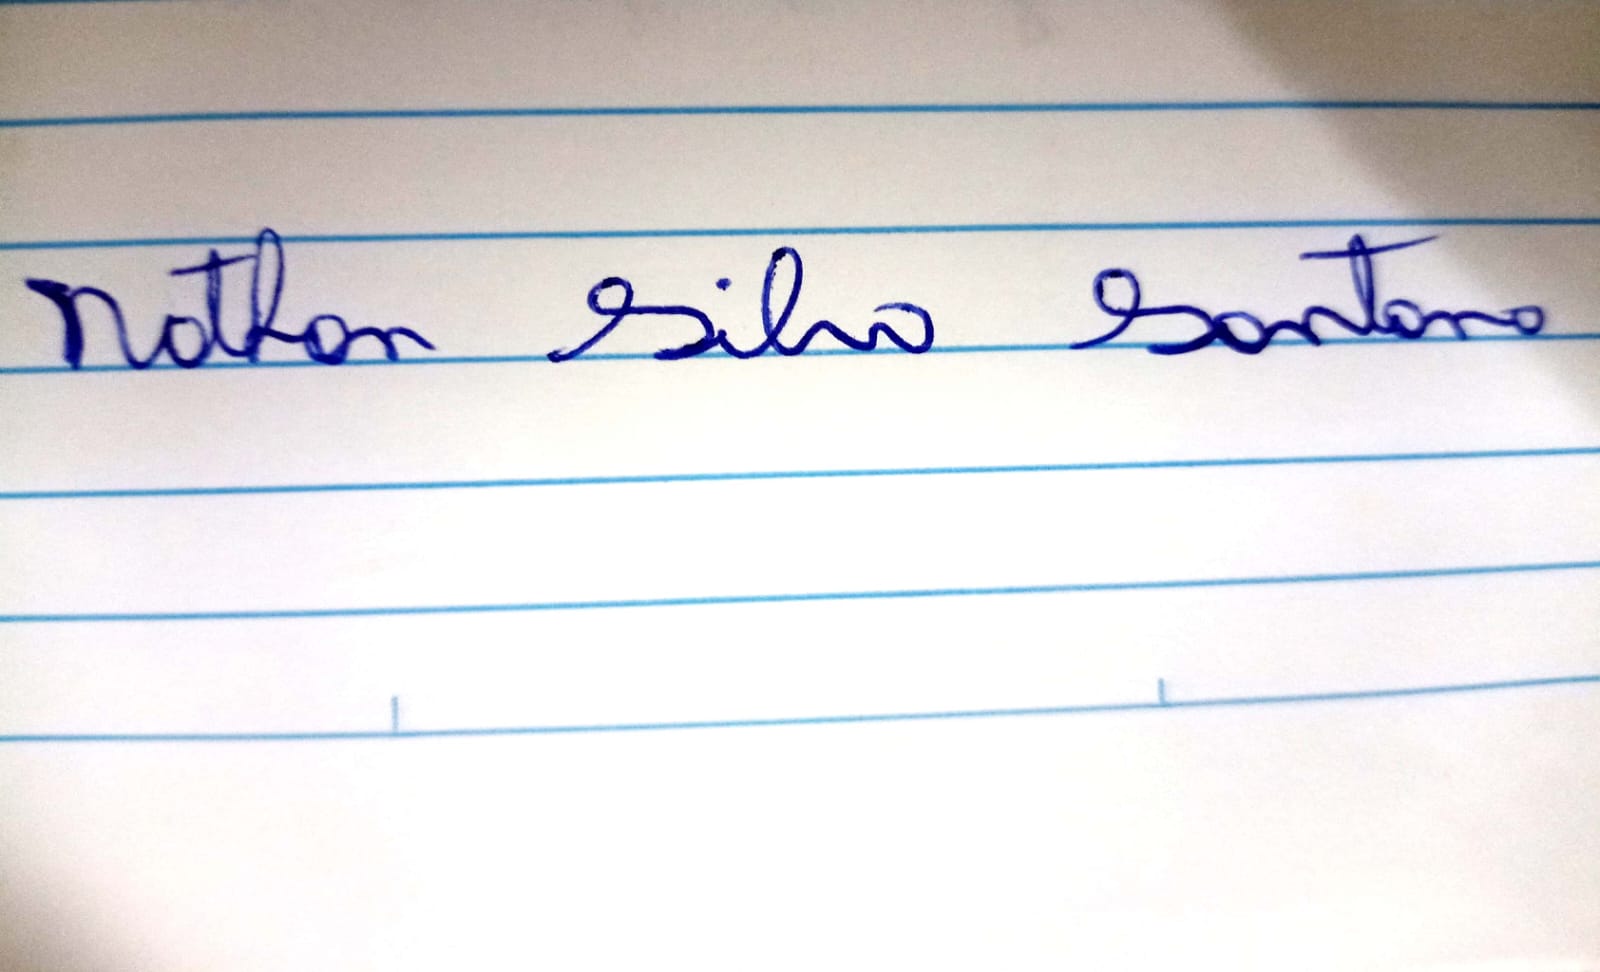 Nathan Silva Santana